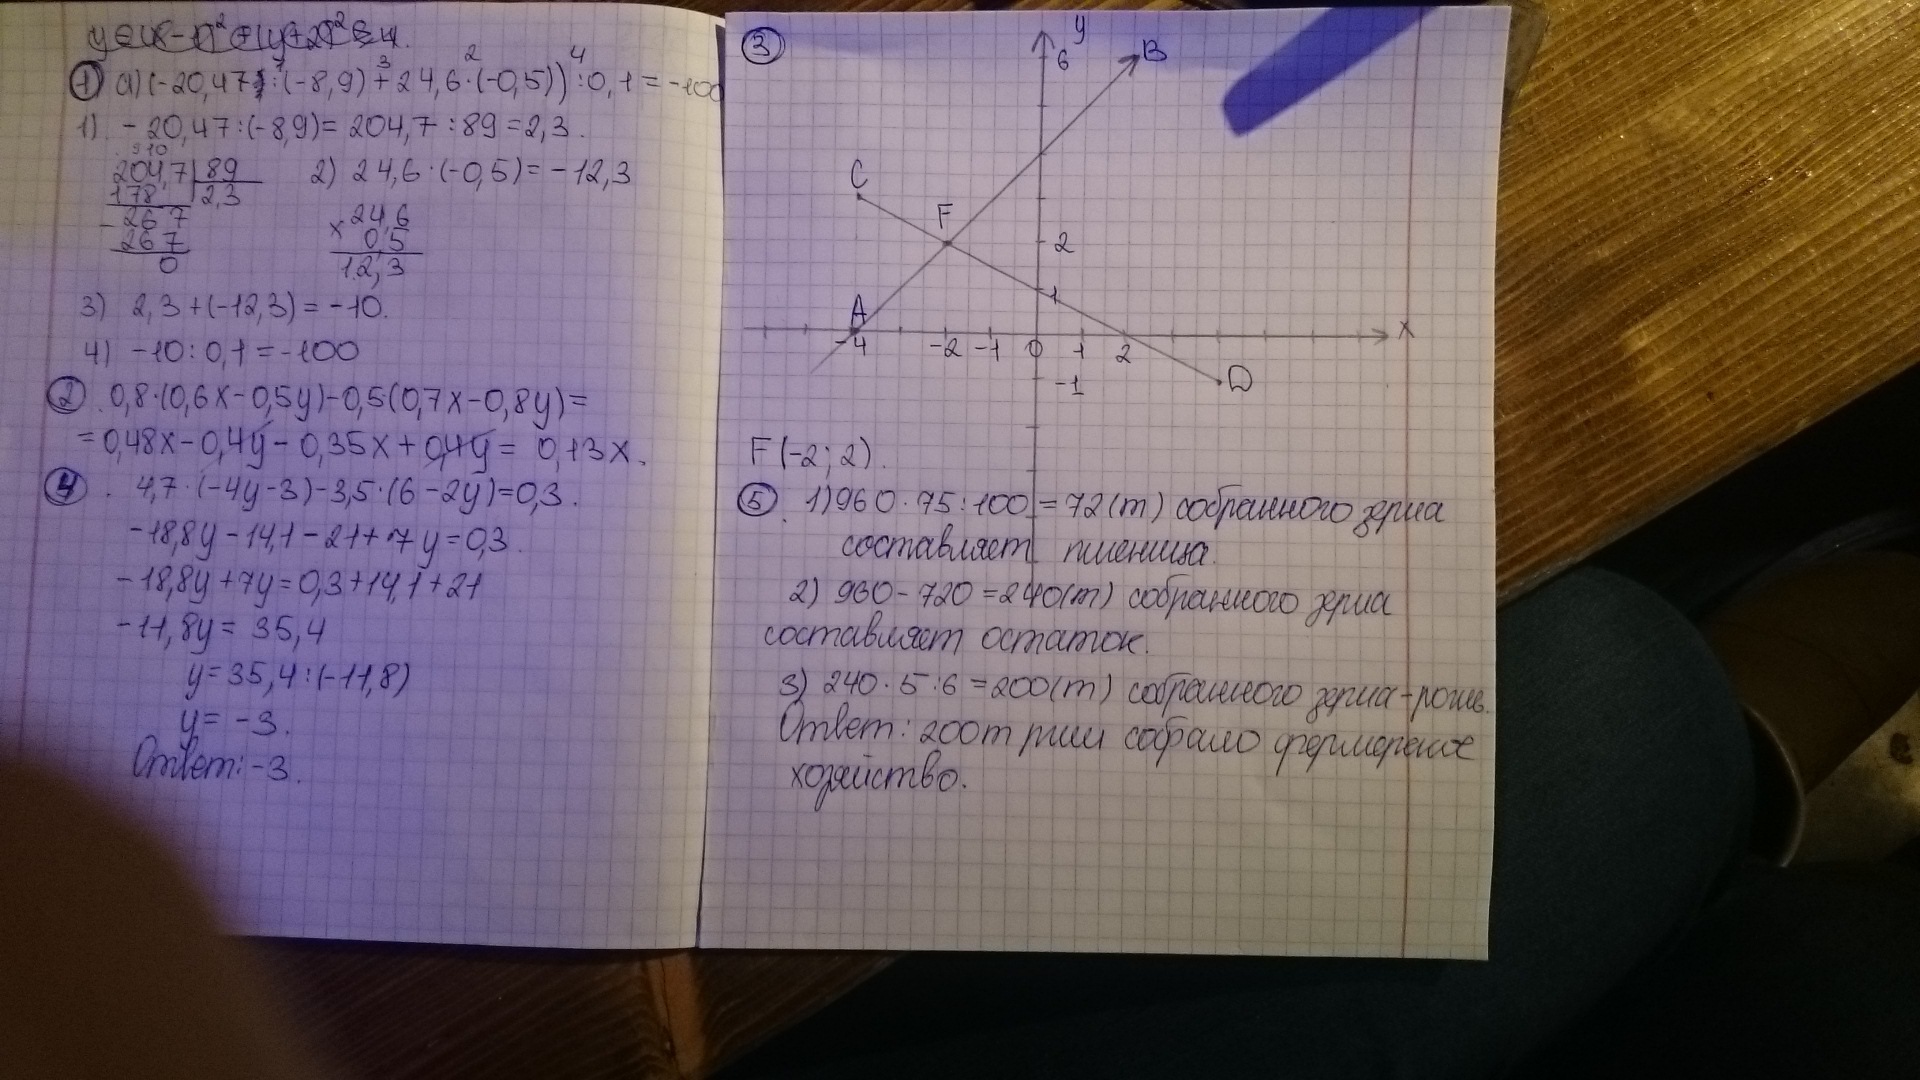 ① а) (-20,47 : (-8,9) + 24,6 · (-0,5)) : 0,1 = -100
1 3 2 4
1) -20,47 : (-8,9) = 204,7 : 89 = 2,3.
204,7 | 89
178 | 2,3
- 267
267
0
2) 24,6 · (-0,5) = -12,3
× 24,6
0,5
12,3
3) 2,3 + (-12,3) = -10.
4) -10 : 0,1 = -100
② 0,8 · (0,6x - 0,5y) - 0,5(0,7x - 0,8y) =
= 0,48x - 0,4y - 0,35x + 0,4y = 0,13x.
④. 4,7 · (-4y - 3) - 3,5 · (6 - 2y) = 0,3.
-18,8y - 14,1 - 21 + 7y = 0,3.
-18,8y + 7y = 0,3 + 14,1 + 21
-11,8y = 35,4
y = 35,4 : (-11,8)
y = -3.
Ответ: -3.
③
y
6
B
C
F
2
1
A
-4 -2 -1 0 1 2
x
-1
D
F(-2; 2).
⑤. 1) 960 · 75 : 100 = 72(т) собранного зерна
составляет пшеница.
2) 960 - 720 = 240(т) собранного зерна
составляет остаток.
3) 240 · 5 : 6 = 200(т) собранного зерна - рожь.
Ответ: 200т ржи собрало фермерское
хозяйство.